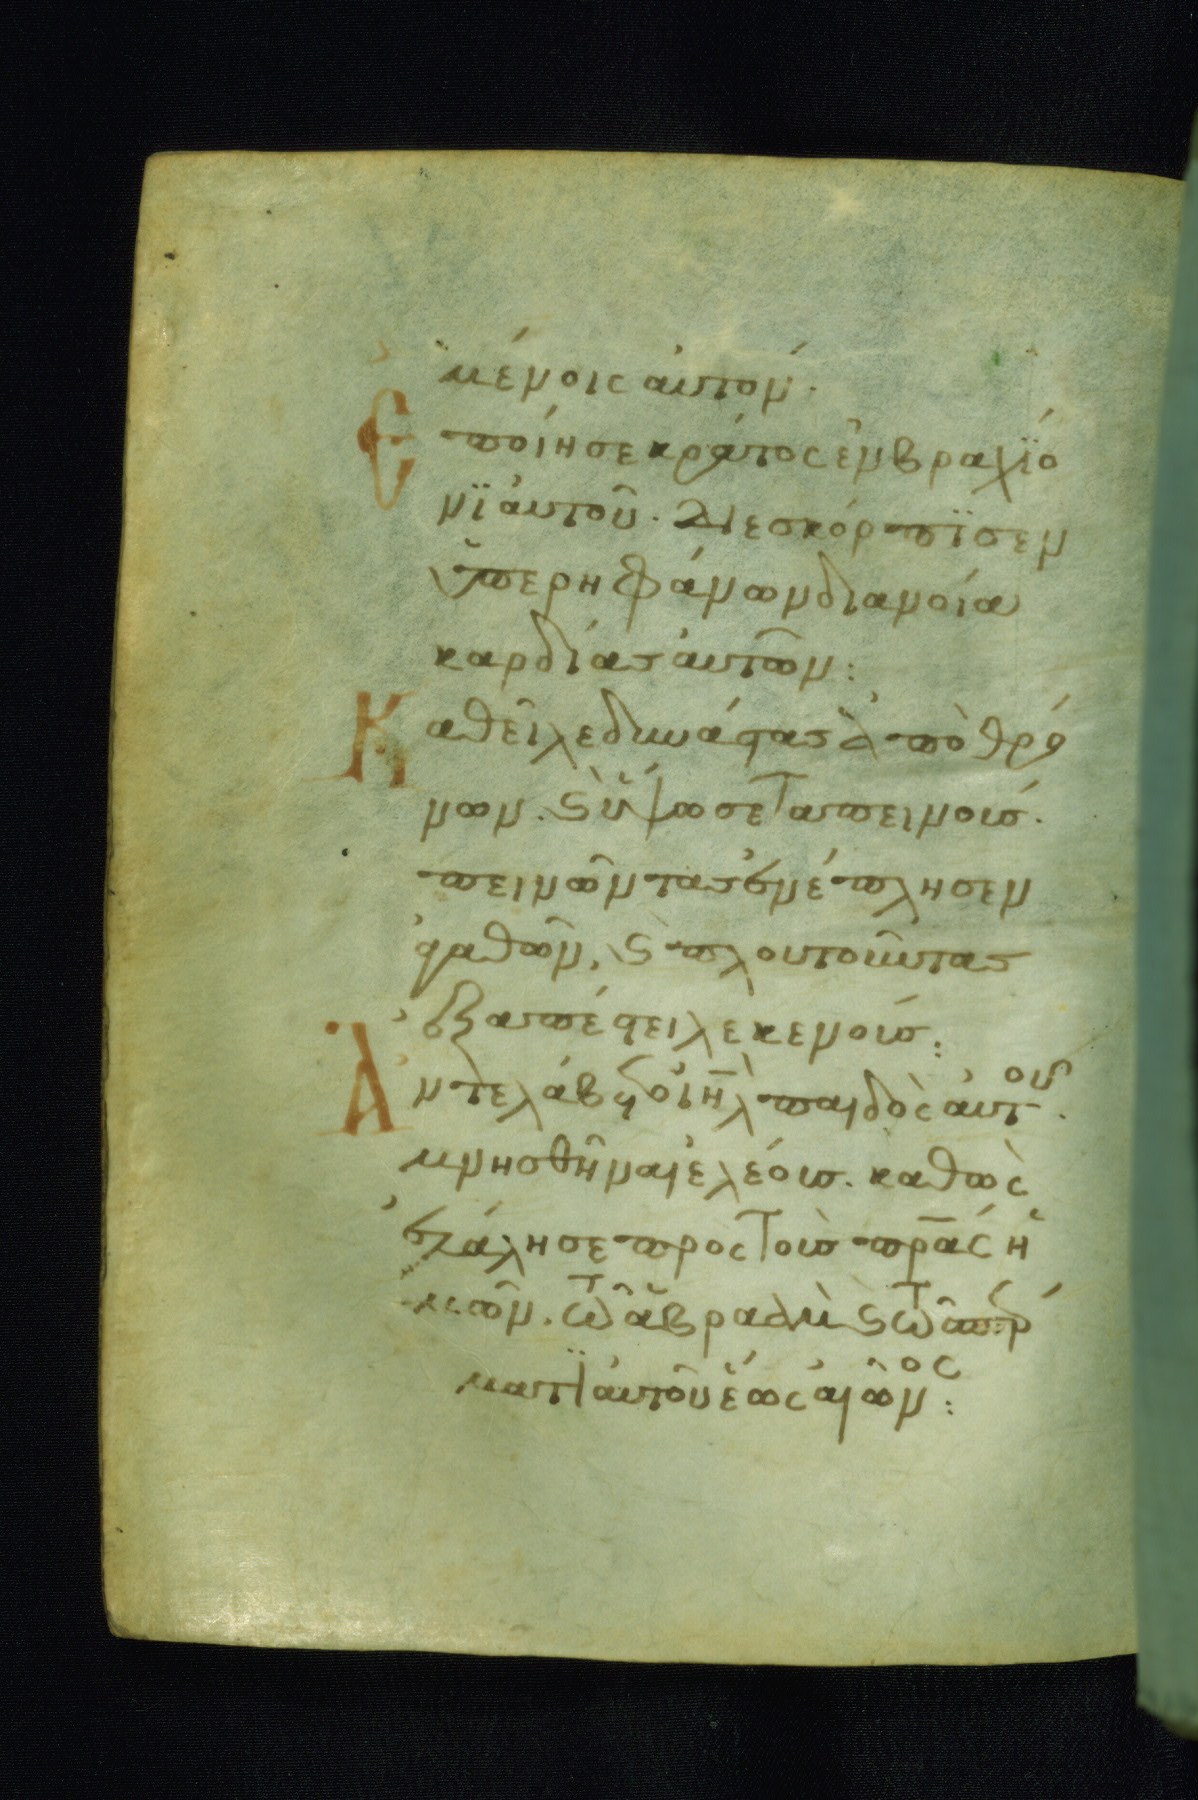 μένοις αὐτόν·
Ἐποίησε κράτος ἐν βραχϊό
νϊ αὐτοῦ· διεσκόρπϊσεν
ὑπερηφάνων διανοία
καρδίας αὐτῶν:
Καθεῖλε δυνάστας ἀπὸ θρό
νων· ϛ ὕψωσε ταπεινούς·
πεινῶντας ἐνέπλησεν
ἀγαθῶν, ϛ πλουτοῦντας
ἐξαπέστειλε κενούς:
Ἀντελάβετο ἰη̅λ παιδὸς αὐτοῦ·
μνησθῆναι ἐλέους· καθὼς
ἐλάλησε πρὸς τοὺς πρ̅ας ἡ
μῶν· τῶ ἀβραὰμ ϛ τῶ σπέρ
ματι αὐτοῦ ἕως αἰῶνος: